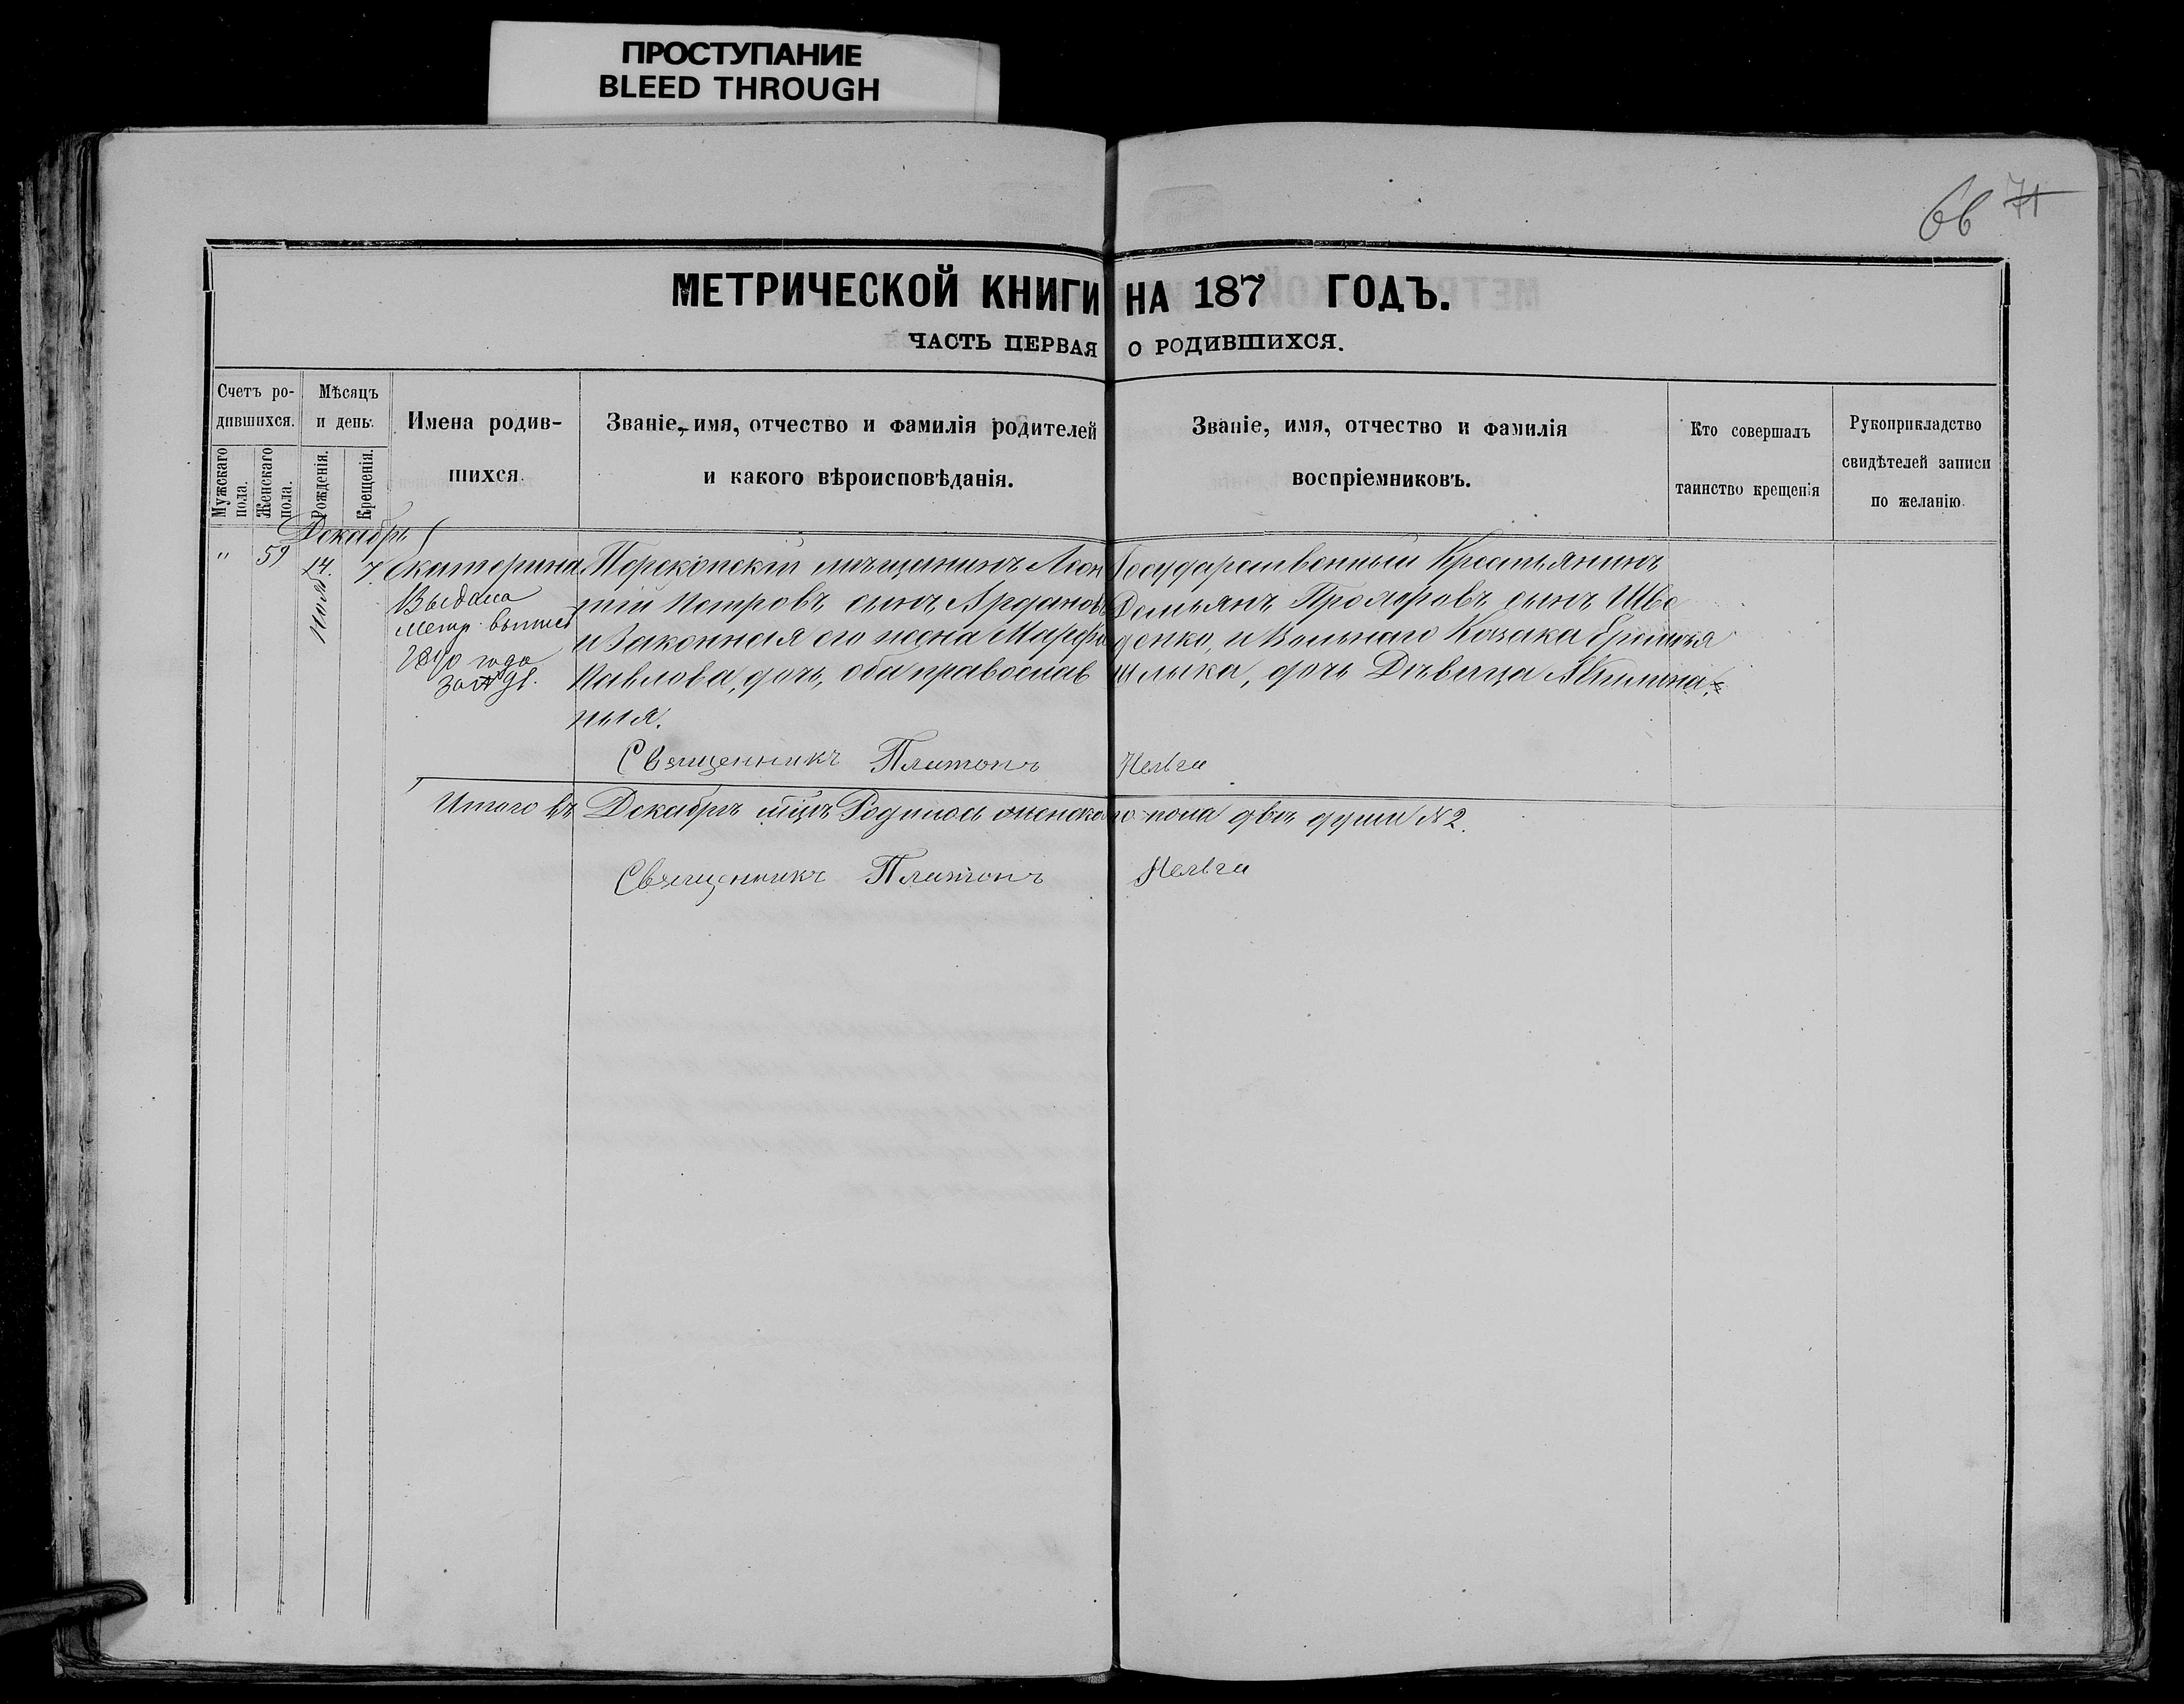 ПРОСТУПАНИЕ
BLEED THROUGH
66 71
МЕТРИЧЕСКОЙ КНИГИ НА 187 ГОДЪ.
ЧАСТЬ ПЕРВАЯ О РОДИВШИХСЯ.
Счетъ ро-
дившихся.
Мужскаго пола.
Женскаго пола.
Мѣсяцъ
и день.
Рожденія.
Крещенія.
Имена родив-
шихся.
Званіе, имя, отчество и фамилія родителей
и какого вѣроисповѣданія.
Званіе, имя, отчество и фамилія
воспріемниковъ.
Кто совершалъ
таинство крещенія
Рукоприкладство
свидѣтелей записи
по желанію.
Декабрь
" 59 14. 7. Екатерина
Выдана
метр. выпись
1890 года
за № 91.
Перекопскій мѣщанинъ Леон
тій Петровъ сынъ
и Законная его жена Марфа
Павлова, дочь, оба православ
ныя.
Государственный Крестьянинъ
Демьянъ сынъ Шве
денко, и Вольнаго Козака
Шлыка, дочь Дѣвица Акилина.
Священникъ Платонъ
Итого въ Декабрѣ мцѣ Родилось женскаго пола двѣ души № 2.
Священникъ Платонъ